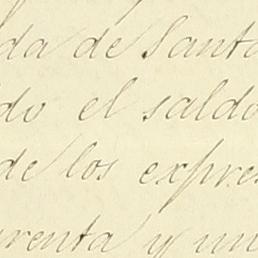 da de Santa
do el saldo
de los expre
renta y un